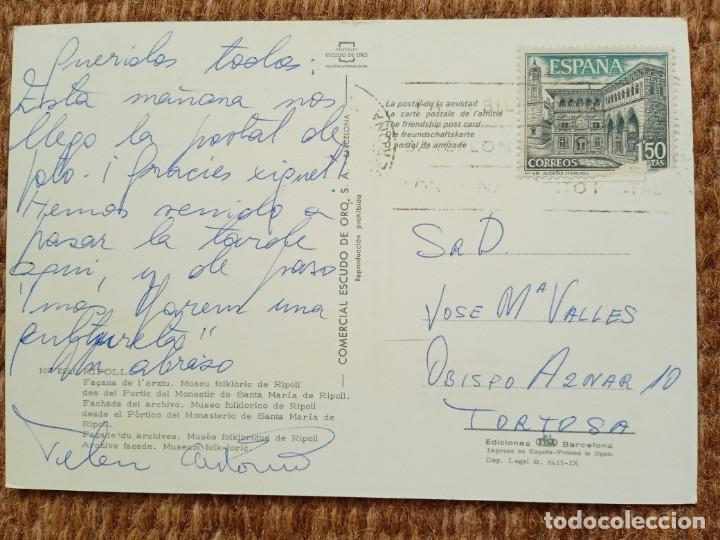 Queridos todos:
Esta mañana nos
llego la postal de
pto. ¡Gracies xiquet!
Hemos venido a
pasar la tarde
aquí, y de paso
farem una
Un abraso
Nº 22 RIPOLL
Façana de l'arxiu. Museu folkloric de Ripoll
des del Portic del Monestir de Santa María de Ripoll.
Fachada del archivo. Museo folklorico de Ripoll
desde el Pórtico del Monasterio de Santa María de
Ripoll.
Façade du archives. Musée folklorique de Ripoll
Archive facade. Museum folk-loric.
POSTALES
ESCUDO DE ORO
COMERCIAL ESCUDO DE ORO, S. A. - BARCELONA
Reproducción prohibida
La postal de la amistad
La carte postale de l'amitié
The friendship post card
Die freundschaftskarte
postal da amizade
ESPAÑA
CORREOS
1,50
PTAS
ALCAÑIZ (TERUEL)
SR D.
JOSE Mª VALLES
OBISPO AZNAR 10
TORTOSA
Ediciones FISA Barcelona
Impreso en España-Printed in Spain
Dep. Legal B. 6411-IX
todocoleccion.net